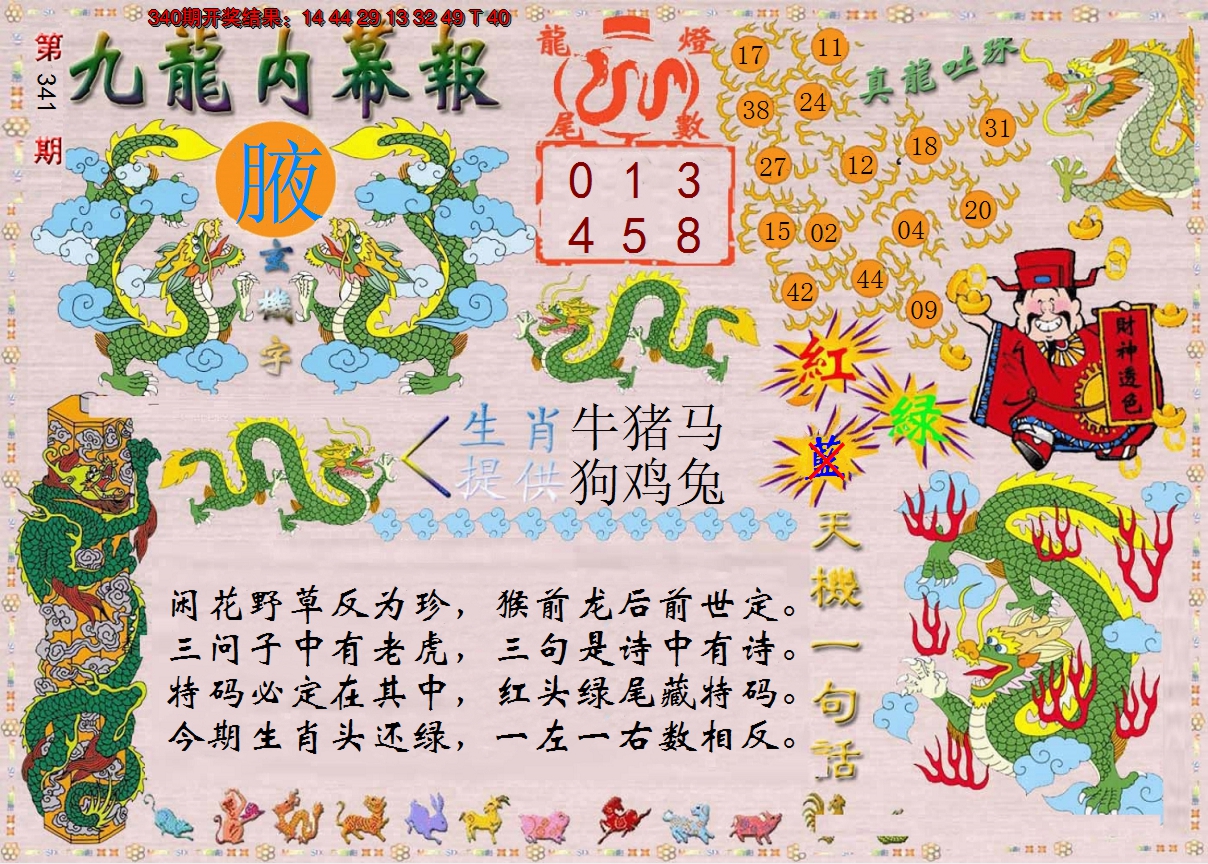 340期开奖结果：14 44 29 13 32 49 T 40
第341期
九龍内幕報
龍燈尾數
0 1 3
4 5 8
真龍吐珠
17 11
38 24
27 12 18 31
15 02 04 20
42 44 09
腋
玄機字
生肖提供
牛猪马
狗鸡兔
紅
绿
藍
財神透色
天機一句話
闲花野草反为珍，猴前龙后前世定。
三问子中有老虎，三句是诗中有诗。
特码必定在其中，红头绿尾藏特码。
今期生肖头还绿，一左一右数相反。